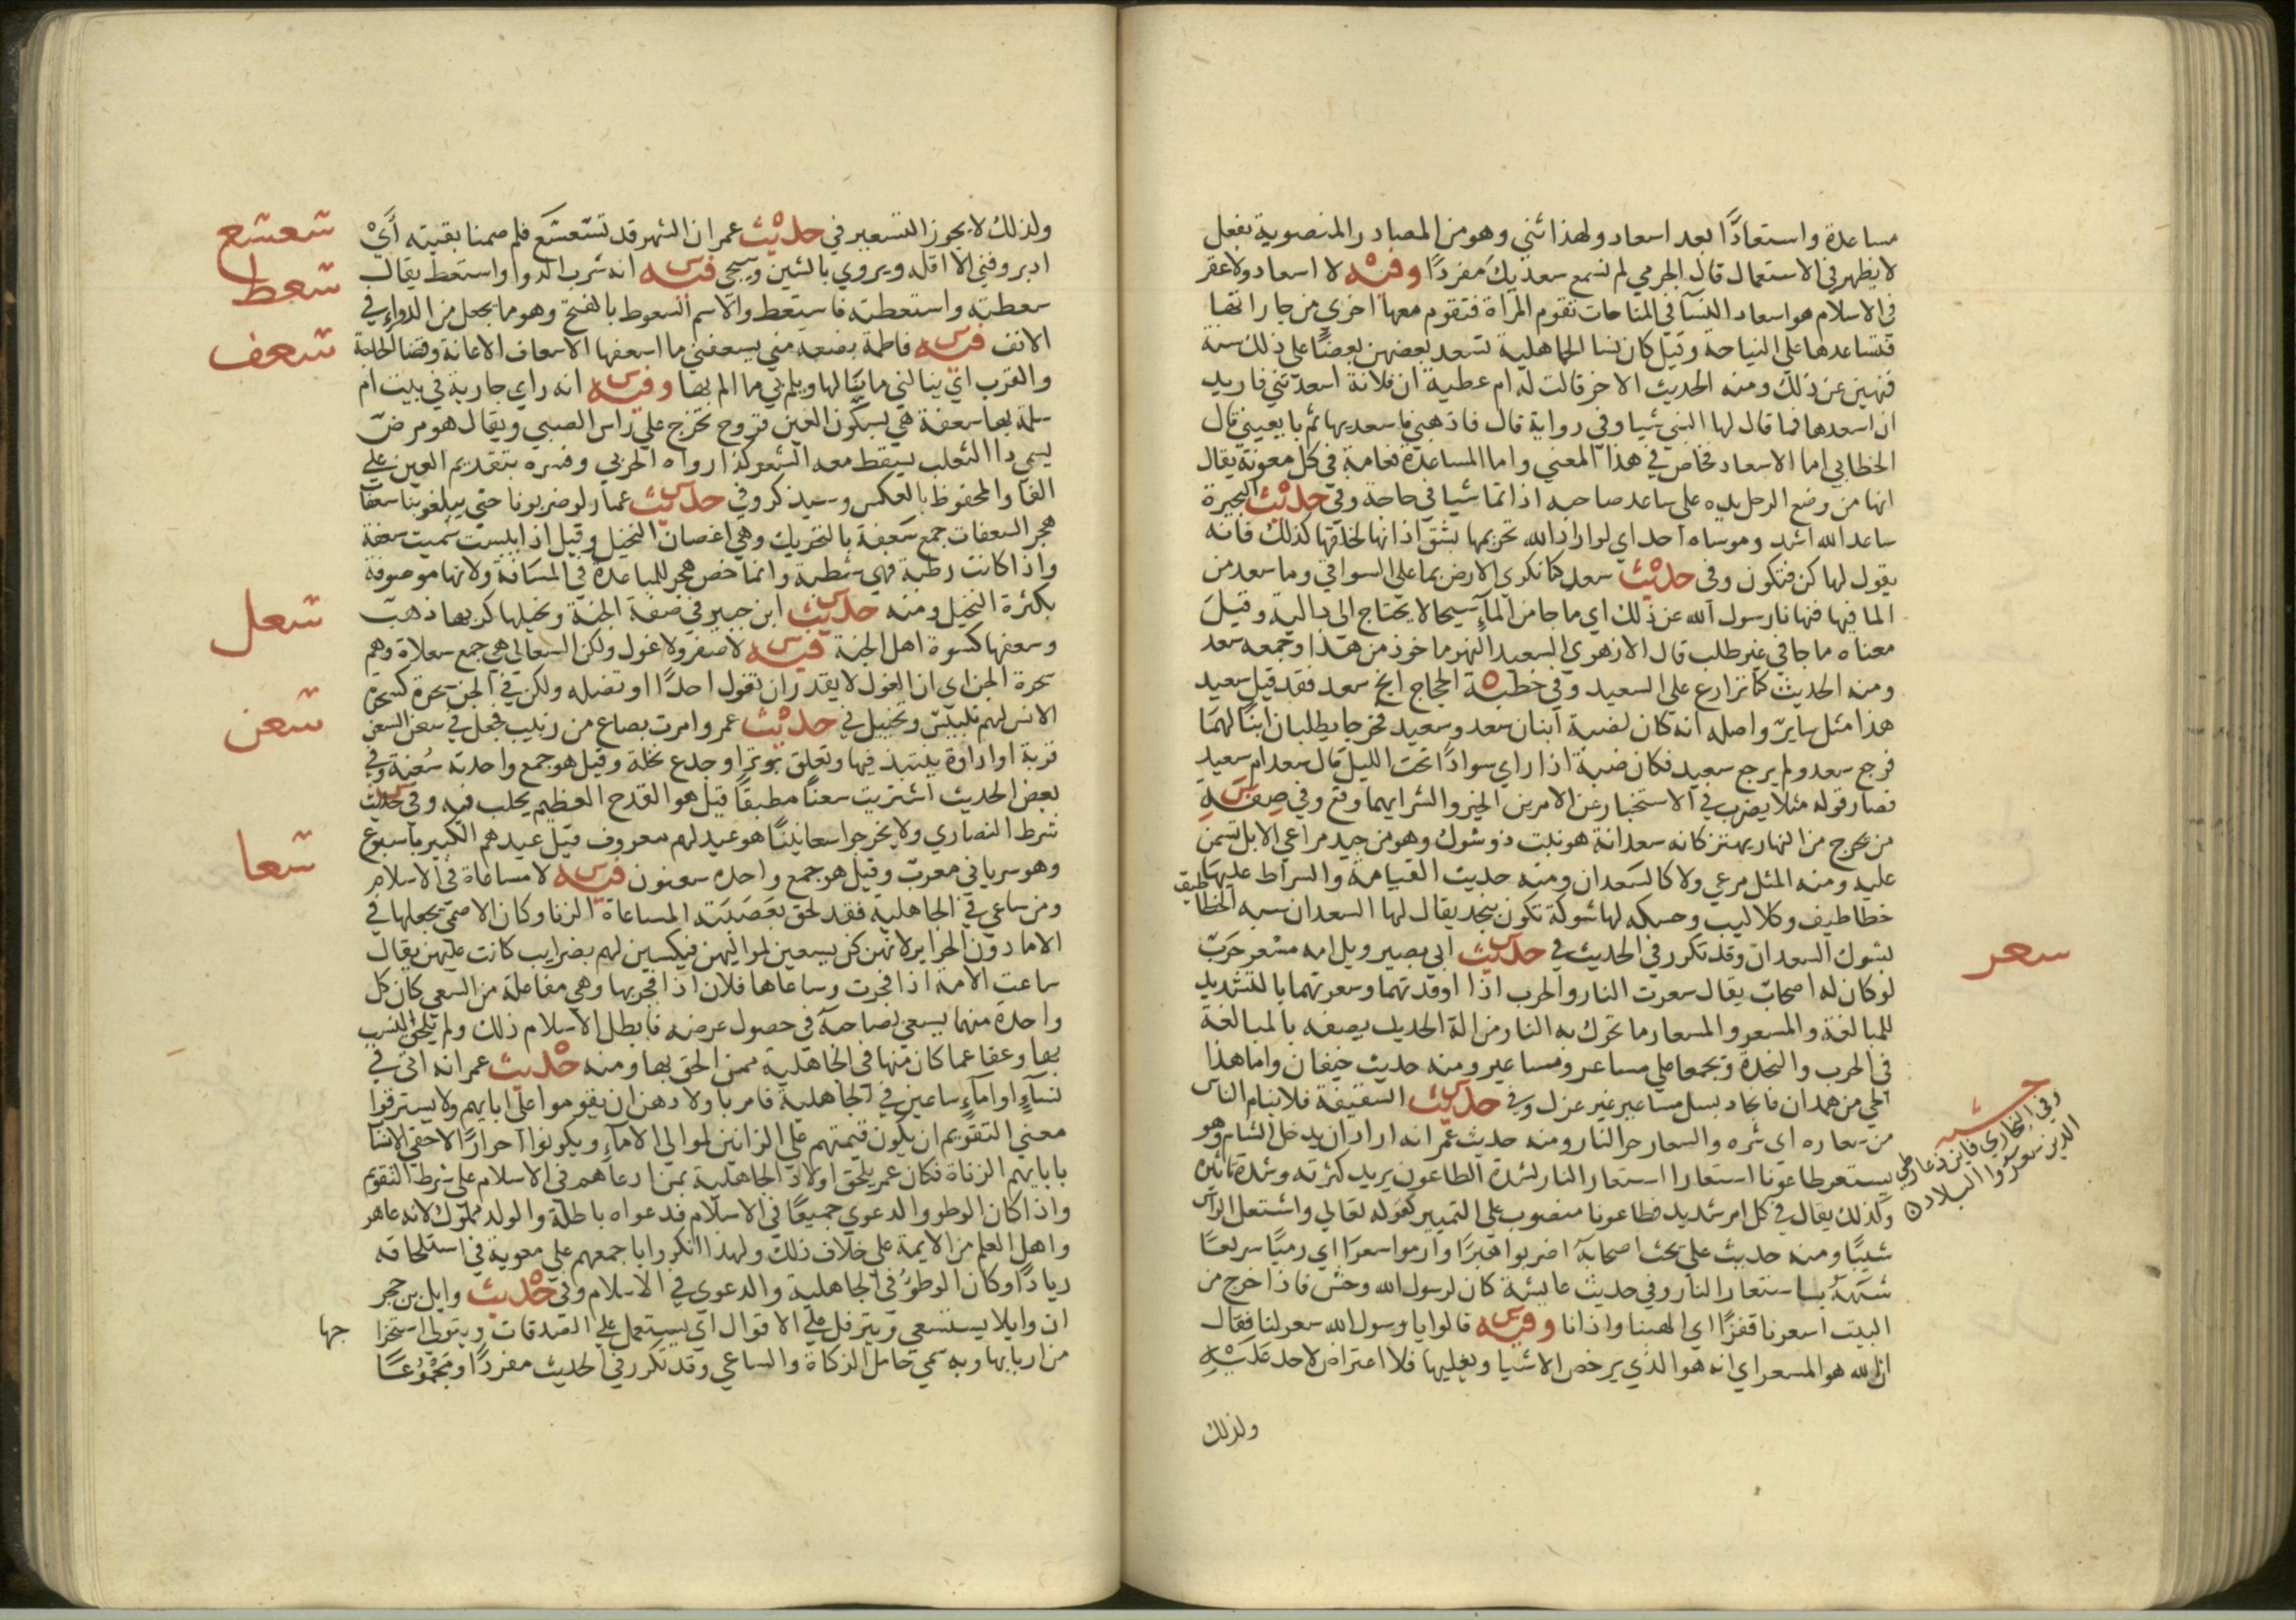 مساعدة واستعادًا بعد اسعاد ولهذا ثني وهو من المصادر المنصوبة بفعل
لا يظهر في الاستعمال قال الجرمي لم نسمع سعديك مفردًا وفيه لا اسعاد ولا عقر
في الاسلام هو اسعاد النسآ في المناحات تقوم المراة فتقوم معها اخري من جاراتها
فتساعدها علي النياحة وقيل كان نسا الجاهلية تسعد بعضهن بعضًا علي ذلك سنة
فنهين عن ذلك ومنه الحديث الاخر قالت له ام عطية ان فلانة اسعدتني فاريد
ان اسعدها فما قال لها النبي شيا وفي رواية قال فاذهبي فاسعديها ثم بايعيني قال
الخطابي اما الاسعاد فخاص في هذا المعني واما المساعدة فعامة في كل معونة يقال
انها من وضع الرجل يده على ساعد صاحبه اذا تماشيا في حاجة وفي حديث البحيرة
ساعد الله اشد وموساه احد اي لو اراد الله تحريمها بشق اذانها لخلقها كذلك فانه
يقول لها كن فتكون وفي حديث سعد كنا نكري الارض بما علي السواقي وما سعد من
الما فيها فنهانا رسول الله عن ذلك اي ما جا من المآء سيحا لا يحتاج الى دالية وقيل
معناه ما جا في غير طلب قال الازهري السعيد النهر ماخوذ من هذا وجمعه سعد
ومنه الحديث كنا نزارع علي السعيد وفي خطبة الحجاج انج سعد فقد قيل سعيد
هذا مثل سايرٌ واصله انه كان لضبة ابنان سعد وسعيد فخرجا يطلبان ابلًا لهما
فرجع سعد ولم يرجع سعيد فكان ضبة اذا راي سوادًا تحت الليل قال سعد ام سعيد
فصار قوله مثلا يضرب في الاستخبار عن الامرين الخير والشر ايهما وقع وفي صفة
من يخرج من النار يهتز كانه سعدانة هو نبت ذو شوك وهو من جيد مراعي الابل تسمن
عليه ومنه المثل مرعي ولا كالسعدان ومنه حديث القيامة والسراط عليها
خطاطيف وكلاليب وحسكه لها شوكة تكون بنجد يقال لها السعدان شبه الخطاطيف
بشوك السعدان وقد تكرر في الحديث في حديث ابي بصير ويل امه مسعر حرب
لو كان له اصحاب يقال سعرت النار والحرب اذا اوقدتهما وسعرتهما بالتشديد
للمبالغة والمسعر والمسعار ما تحرك به النار من الة الحديد يصفه بالمبالغة
في الحرب والنجدة وتجمعا علي مساعر ومساعير ومنه حديث خيفان واما هذا
الحي من همدان فانجاد بسل مساعير غير عزل وفي حديث السقيفة فلا ينام الناس
من سعاره اي شره والسعار حر النار ومنه حديث عمر انه اراد ان يدخل الشام وهو
يستعر طاعونا استعارا استعار النار لشدة الطاعون يريد كثرته وشدة تاثيره
وكذلك يقال في كل امر شديد فطاعونا منصوب علي التمييز كقوله تعالي واشتعل الراس
شيبًا ومنه حديث علي يحث اصحابه اضربوا هبرًا وارموا سعرا اي رميًا سريعًا
شبهه باستعار النار وفي حديث عايشة كان لرسول الله وحش فاذا خرج من
البيت اسعرنا قفزًا اي الهبنا واذانا وفيه قالوا يا رسول الله سعر لنا فقال
ان الله هو المسعر اي انه هو الذي يرخص الاشيا ويغليها فلا اعتراض لاحد عليه
ولذلك
سعر
حشيه
وفي البخاري فاين ذعار طي
الذين سعروا البلاد
ولذلك لا يجوز التسعير في حديث عمر ان الشهر قد تسعسع فلم صمنا بقيته أي
ادبر وفني الا اقله ويروي بالشين وسيجي فيه انه شرب الدوا واستعط يقال
سعطته واستعطته فاستعط والاسم السعوط بالفتح وهو ما يجعل من الدواء في
الانف فيه فاطمة بضعة مني يسعفني ما اسعفها الاسعاف الاعانة وقضا الحاجة
والقرب اي ينالني ما ينالها ويلم بي ما الم بها وفيه انه راي جارية في بيت ام
سلمة بها سعفة هي بسكون العين قروح تخرج علي راس الصبي ويقال هو مرض
يسمي دا الثعلب يسقط معه الشعر كذا رواه الحربي وفسره بتقديم العين علي
الفا والمحفوظ بالعكس وسيذكر وفي حديث عمار لو ضربونا حتي يبلغوا بنا سعفا
هجر السعفات جمع سعفة بالتحريك وهي اغصان النخيل وقيل اذا يبست سميت سعفة
واذا كانت رطبة فهي شطبة وانما خص هجر للمباعدة في المسافة ولانها موصوفة
بكثرة النخيل ومنه حديث ابن جبير في صفة الجنة ونخيلها كربها ذهب
وسعفها كسوة اهل الجنة فيه لا صفر ولا غول ولكن السعالي هي جمع سعلاة وهم
سحرة الجن اي ان الغول لا يقدر ان تغول احدًا او تضله ولكن في الجن سحرة كسحرة
الانس لهم تلبيس وتخييل في حديث عمر وامرت بصاع من زبيب فجعل في سعن السعن
قربة او اداوة ينتبذ فيها وتعلق بوتر او جذع نخلة وقيل هو جمع واحدته سعنة وفي
بعض الحديث اشتريت سعنًا مطبقًا قيل هو القدح العظيم يحلب فيه وفي حديث
شرط النصاري ولا يخرجوا سعانينًا هو عيد لهم معروف قبل عيدهم الكبير باسبوع
وهو سرياني معرب وقيل هو جمع واحده سعنون فيه لا مساعاة في الاسلام
ومن ساعي في الجاهلية فقد لحق بعصبته المساعاة الزنا وكان الاصمعي يجعلها في
الاما دون الحراير لانهن كن يسعين لمواليهن فيكسبن لهم بضرايب كانت عليهن يقال
ساعت الامة اذا فجرت وساعاها فلان اذا فجر بها وهي مفاعلة من السعي كان كل
واحدة منهما يسعي لصاحبه في حصول غرضه فابطل الاسلام ذلك ولم يلحق النسب
بها وعفا عما كان منها في الجاهلية ممن الحق بها ومنه حديث عمر انه اتي في
نسآء او امآء ساعين في الجاهلية فامر باولادهن ان يقوموا علي ابايهم ولا يسترقوا
معني التقويم ان يكون قيمتهم علي الزانين لموالي الاماء ويكونوا احرارًا لاحقي الانساب
بابايهم الزناة فكان عمر يلحق اولاد الجاهلية بمن ادعاهم في الاسلام علي شرط التقويم
واذا كان الوطو والدعوي جميعًا في الاسلام فدعواه باطلة والولد مملوك لانه عاهر
واهل العلم من الايمة علي خلاف ذلك ولهذا انكروا باجمعهم علي معوية في استلحاقه
زيادًا وكان الوطو في الجاهلية والدعوي في الاسلام وفي حديث وايل بن حجر
ان وايلا يستسعي ويترفل علي الاقوال اي يستعمل علي الصدقات ويتولي استخراجها
من اربابها وبه سمي عامل الزكاة والساعي وقد تكرر في الحديث مفردًا ومجموعًا
سعسع
سعط
سعف
سعل
سعن
سعا